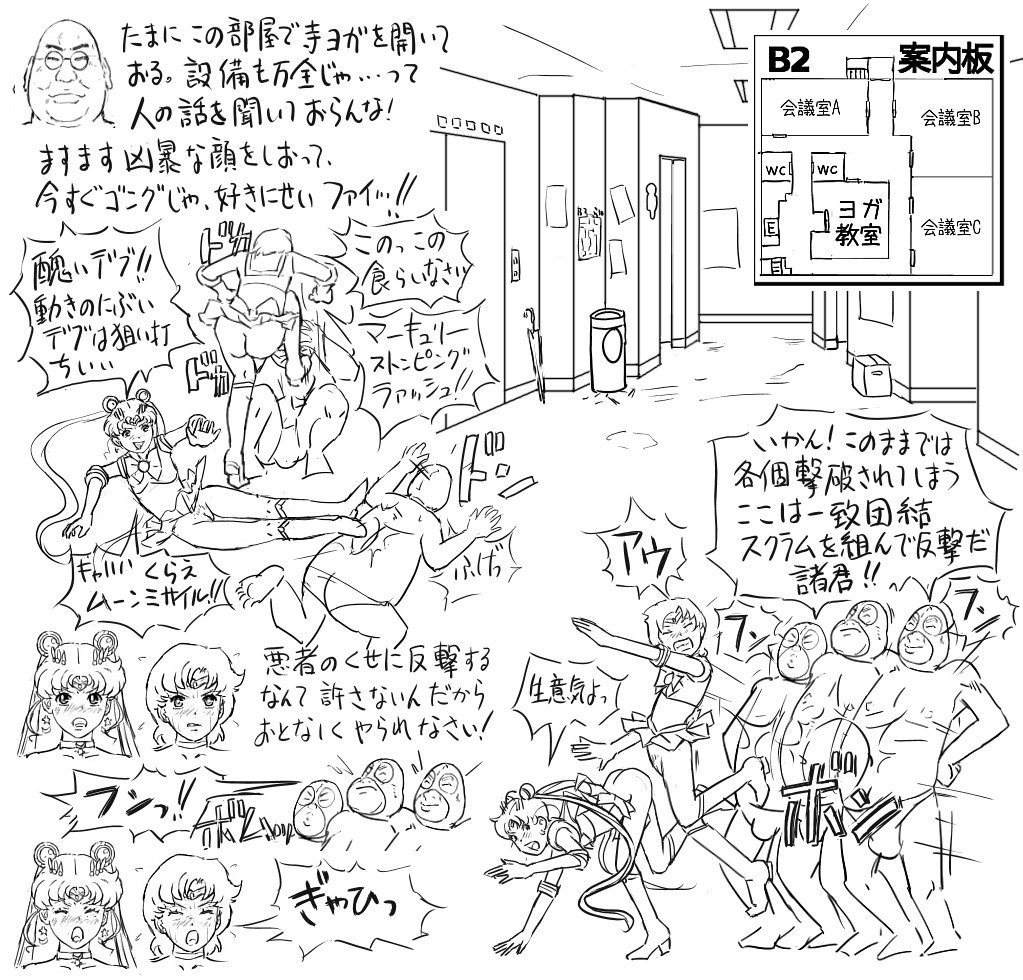 たまにこの部屋で寺ヨガを開いて
おる。設備も万全じゃ…って
人の話を聞いておらんな!
ますます凶暴な顔をしおって、
今すぐゴングじゃ、好きにせい ファイッ!!
B2 案内板
会議室A
会議室B
WC
WC
ヨガ
教室
E
会議室C
B3
醜いデブ!!
動きのにぶい
デブは狙い打
ちぃぃ
ドドッ
ドドッ
このっこの
食らいなさい
マーキュリー
ストンピング
ラァッシュ!!
ドゴッ
キャハハ くらえ
ムーンミサイル!!
ふげっ
いかん!このままでは
各個撃破されてしまう
ここは一致団結
スクラムを組んで反撃だ
諸君!!
アウ
フン
フン
生意気よっ
ボンッ
悪者のくせに反撃する
なんて許さないんだから
おとなしくやられなさい!
フンっ!!
ぎゃひっ